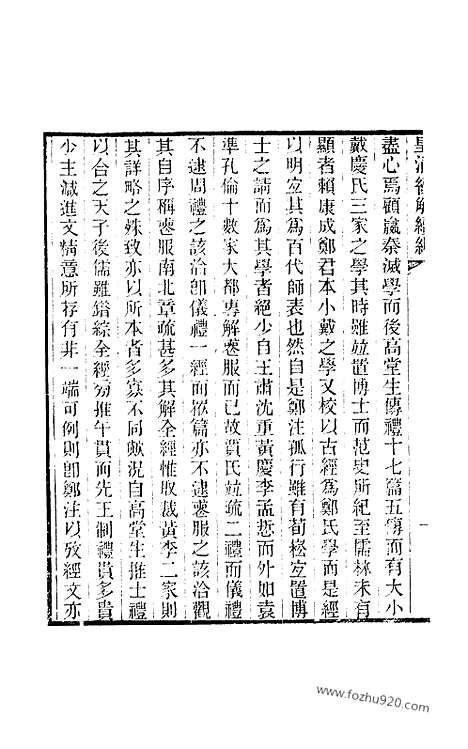 皇清經解續編
盡心焉顧嬴秦滅學而後高堂生傳禮十七篇五傳而有大小
戴慶氏三家之學其時雖竝置博士而范史所紀至儒林未有
顯者賴康成鄭君本小戴之學又校以古經爲鄭氏學而是經
以明宐其爲百代師表也然自是鄭注孤行雖有荀崧宐置博
士之請而爲其學者絕少自王肅沈重黃慶李孟悊而外如袁
準孔倫十數家大都專解喪服而已故賈氏竝疏二禮而儀禮
不逮周禮之該洽卽儀禮一經而掀篇亦不逮喪服之該洽觀
其自序稱喪服南北章疏甚多其解全經惟取裁黃李二家則
其詳略之殊致亦以所本者多寡不同歟況自高堂生推士禮
以合之天子後儒雖錯綜全經匆推午貫而先王制禮貴多貴
少主減進文精意所存有非一端可例則卽鄭注以攷經文亦
一
www.fozhu920.com